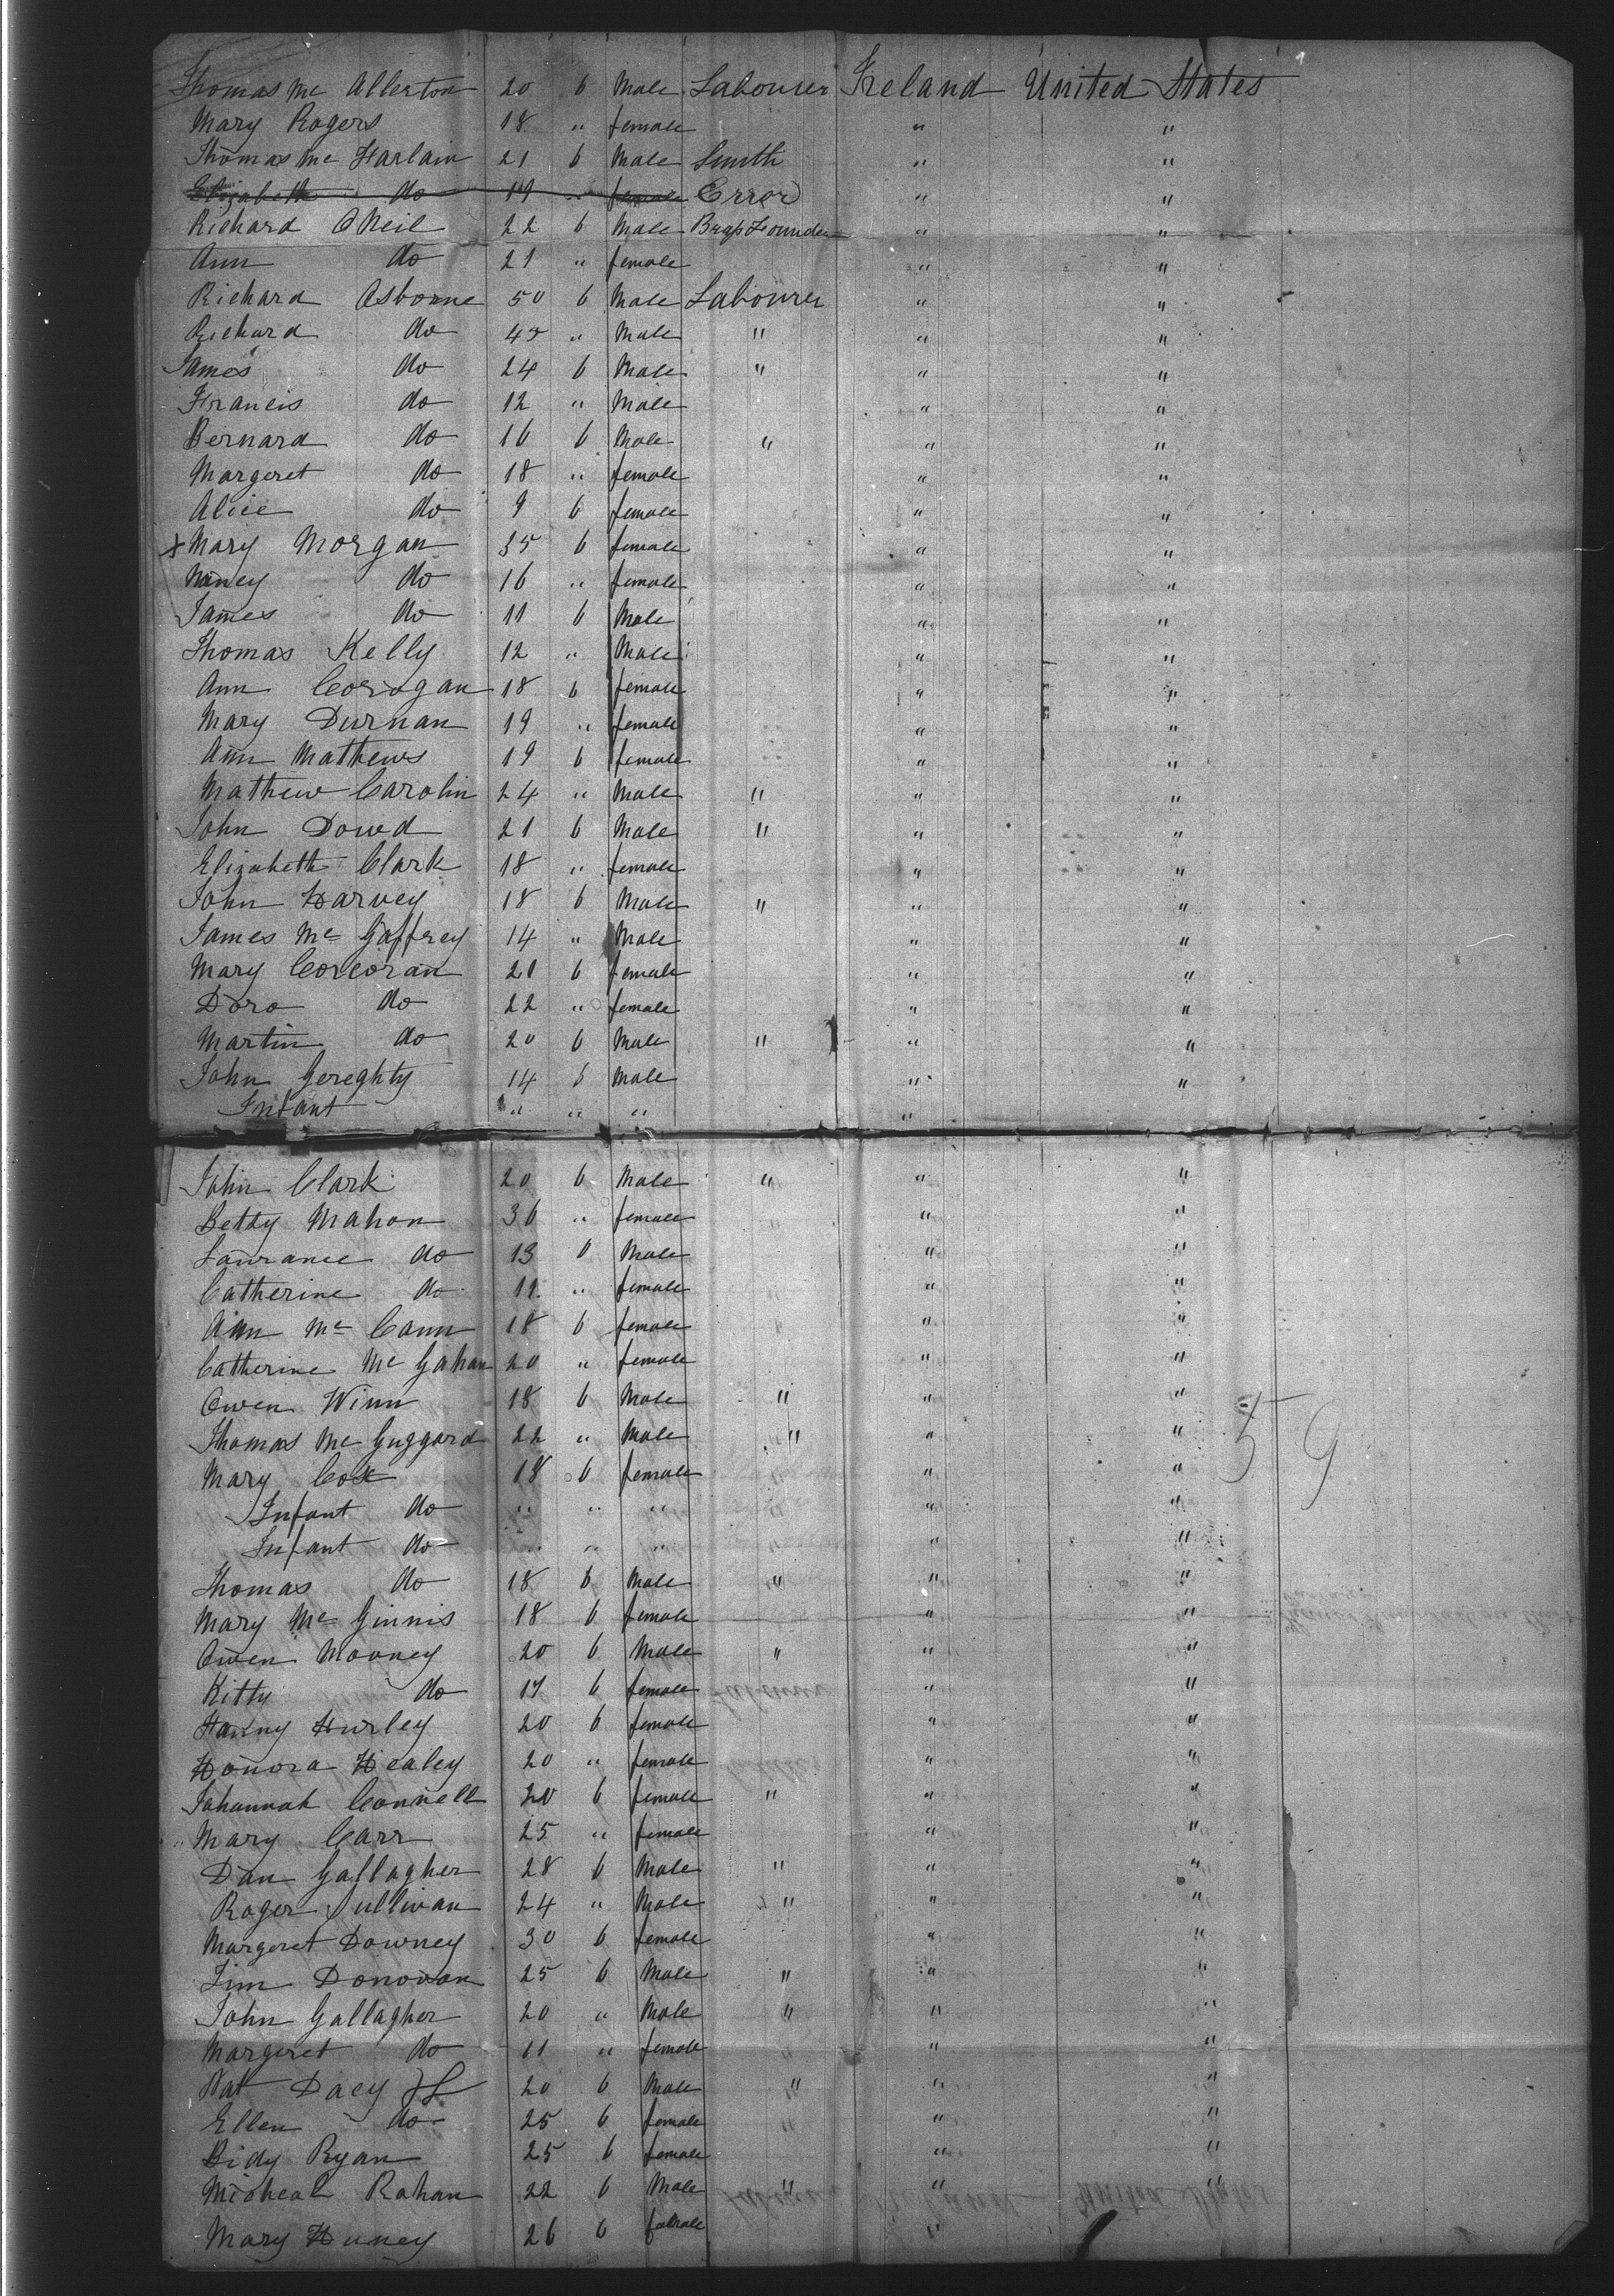 Thomas Mc Allerton 20 6 Male Labourer Ireland United States
Mary Rogers 18 " female " "
Thomas Mc Harlain 21 6 Male Smith " "
Elizabeth do 19 " female Error " "
Richard O Neil 22 6 Male Brass Founder " "
Ann do 21 " female " "
Richard Osborne 50 6 Male Labourer " "
Richard do 45 " Male " " "
James do 24 6 Male " " "
Francis do 12 " Male " "
Bernard do 16 6 Male " " "
Margeret do 18 " female " "
Alice do 9 6 female " "
x Mary Morgan 35 6 female " "
Nancy do 16 " female " "
James do 11 6 Male " "
Thomas Kelly 12 " Male " "
Ann Corogan 18 6 female " "
Mary Durnan 19 " female " "
Ann Mathews 19 6 female " "
Mathew Carolin 24 " Male " " "
John Dowd 21 6 Male " " "
Elizabeth Clark 18 " female " "
John Harvey 18 6 Male " " "
James Mc Gaffrey 14 " Male " "
Mary Corcoran 21 6 female " "
Dora do 22 " female " "
Martin do 20 6 Male " " "
John Gereghty 14 6 Male " "
Infant " " " "
John Clark 20 6 Male " " "
Betty Mahon 36 " female " "
Lawrance do 13 6 Male " "
Catherine do 11 " female " "
Ann Mc Cann 18 6 female " "
Catherine Mc Gahan 20 " female " "
Owen Winn 18 6 Male " " "
Thomas Mc Guggard 22 " Male " " " 59
Mary Cox 18 6 female " "
Infant do " " " " "
Infant do " " " " "
Thomas do 18 6 Male " " "
Mary Mc Ginnis 18 6 female " "
Owen Mooney 20 6 Male " " "
Kitty do 17 6 female " "
Hanny Hurley 20 6 female " "
Honora Healey 20 " female " "
Johannah Connell 20 6 female " " "
Mary Carr 25 " female " "
Dan Gallagher 28 6 Male " " "
Roger Sullivan 24 " Male " " "
Margeret Downey 30 6 female " "
Tim Donovan 25 6 Male " " "
John Gallagher 20 " Male " " "
Margeret do 11 " female " "
Pat Dacy 20 6 Male " " "
Ellen do 25 6 female " "
Bidy Ryan 25 6 female " "
Micheal Rohan 22 6 Male " " "
Mary Huney 26 6 female "